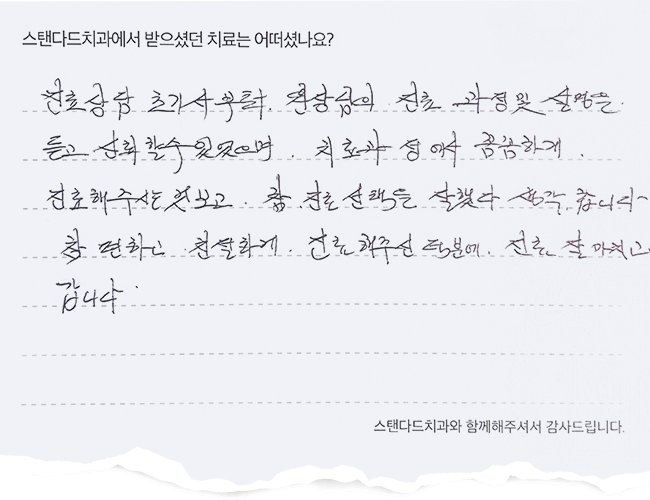 스탠다드치과에서 받으셨던 치료는 어떠셨나요?
진료상담 초기서부터. 원장님의 진료 과정및 설명을
듣고 신뢰할수 있었으며. 치료과정에서 꼼꼼하게.
진료해주시는것보고. 참 진료선택을 잘했다 생각, 합니다~
참 편하고 친절하게. 진료해주신 덕분에. 진료 잘 마치고
갑니다.
스탠다드치과와 함께해주셔서 감사드립니다.